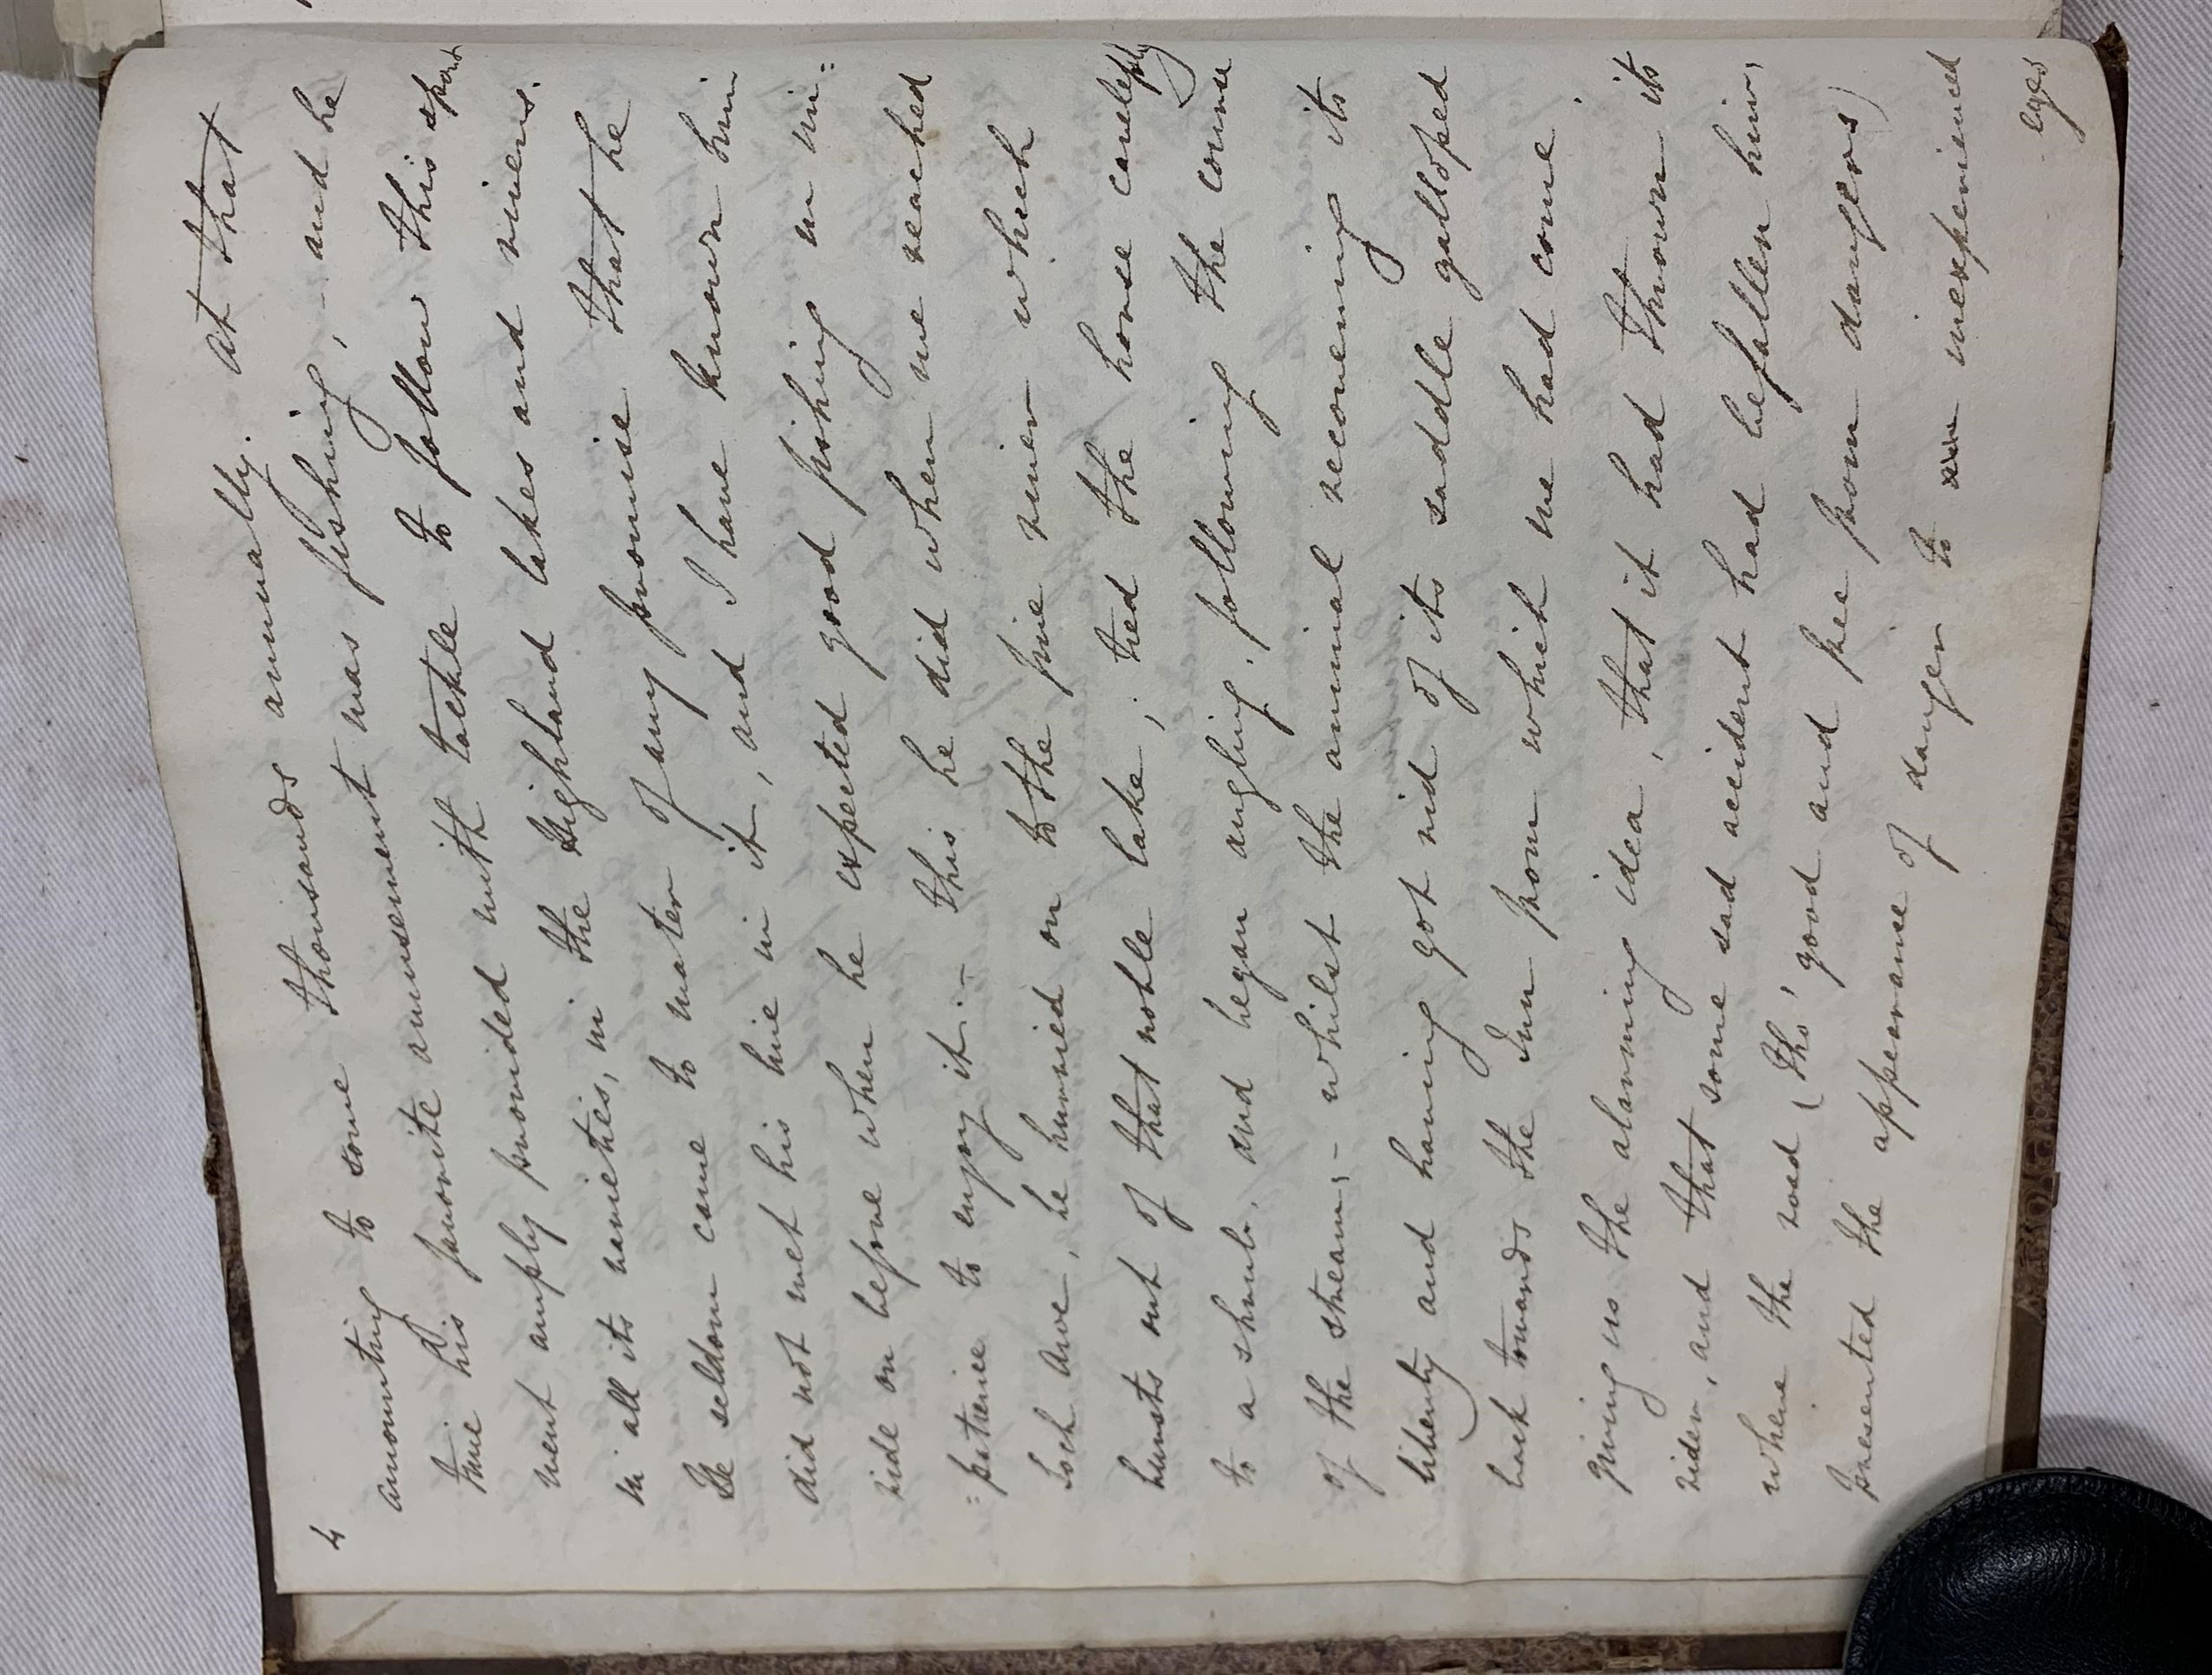 4
amounting to some thousands annually. at that
time his favorite amusement was fishing, - and he
went amply provided with tackle to follow this sport
in all its varieties, in the Highland lakes and rivers.
He seldom came to water of any promise that he
did not wet his line in it, and I have known him
ride on before when he expected good fishing in im:
:patience to enjoy it. - this he did when we reached
Loch Awe, he hurried on to the fine river which
bursts out of that noble lake, tied the horse carelessly
to a shrub, and began angling, following the course
of the stream, - whilst the animal recovering its
liberty and having got rid of its saddle galloped
back towards the Inn from which we had come,
giving us the alarming idea, that it had thrown its
rider, and that some sad accident had befallen him,
where the road (tho' good and free from dangers)
presented the appearance of danger to inexperienced
eyes